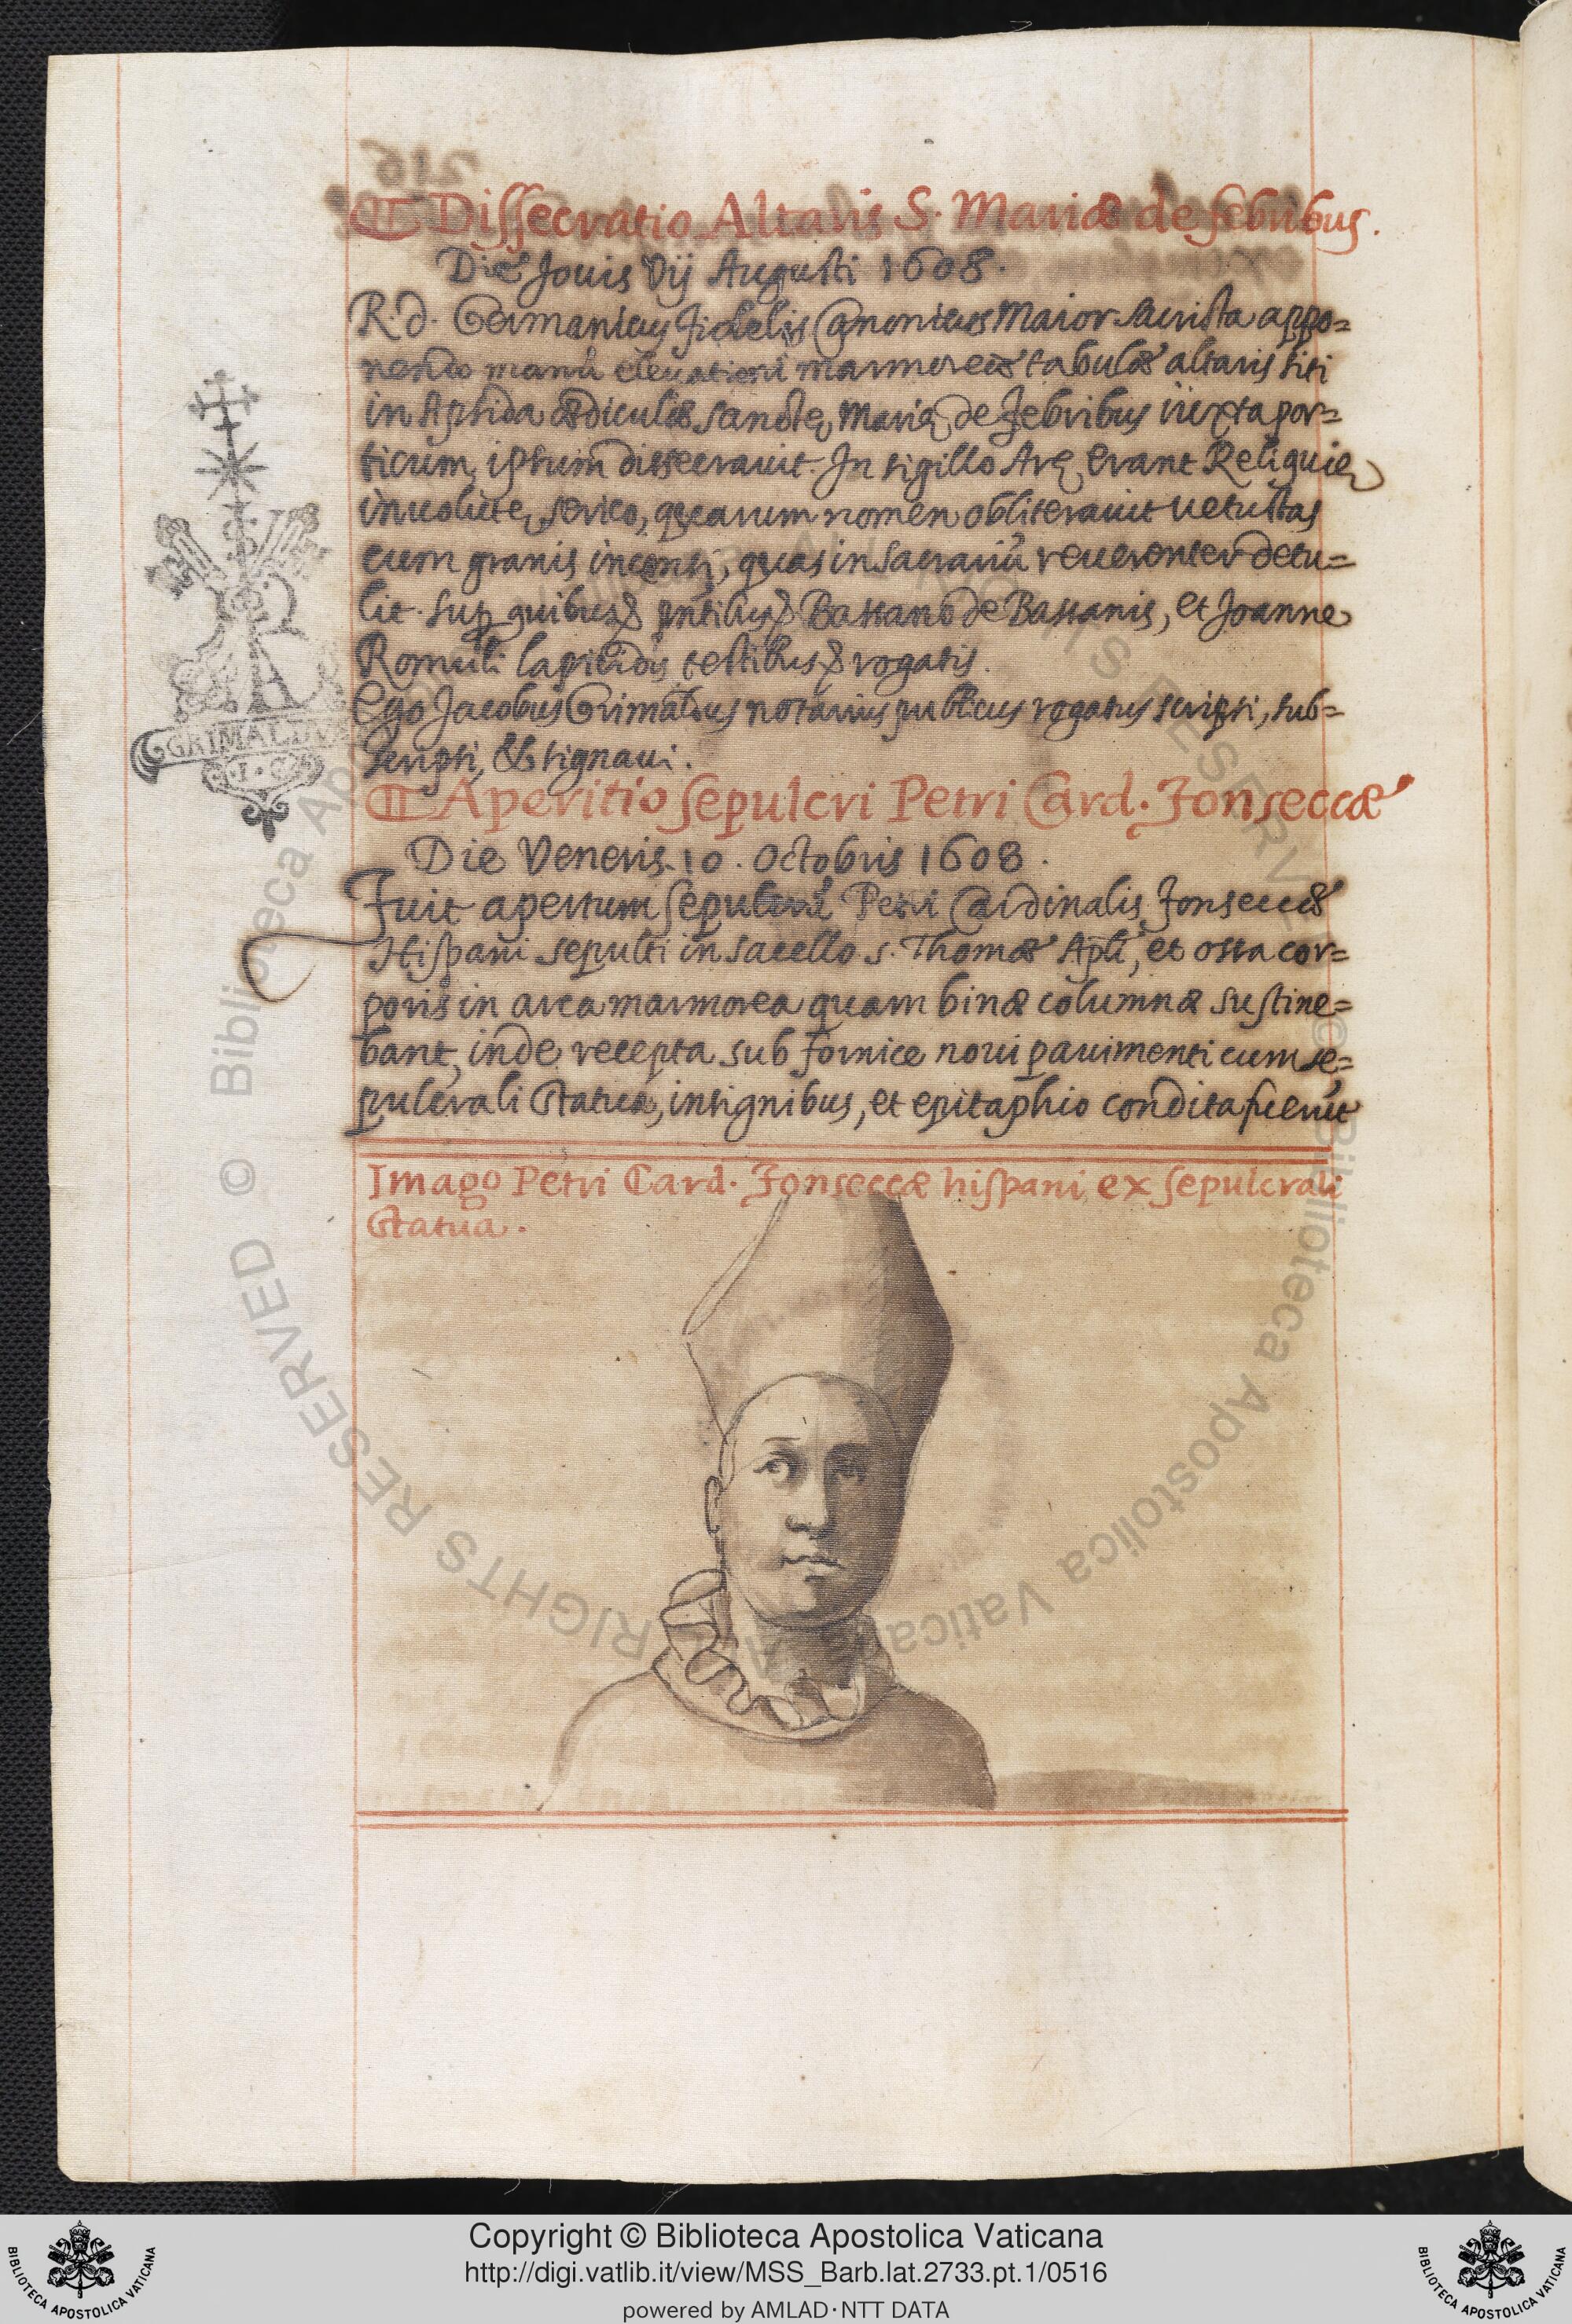 216
¶ Dissecratio Altaris S. Mariæ de febribus.
Die Jouis Vij Augusti 1608.
R. d. Germanicus Fidelis Canonicus Maior sacrista appo=
nendo manū eleuationi marmoreæ tabulæ altaris siti
in Apsida ædiculæ sanctę Marię de Febribus iuxta por=
ticum, ipsum dissecrauit. In sigillo Arę erant Reliquię
inuolutę serico, quarum nomen obliterauit uetustas
cum granis incensi, quas in sacrariū reuerenter detu=
lit. sup quibus & pntibus Bassano de Bassanis, et Joanne
Romuli lapicidis testibus & rogatis.
Ego Jacobus Grimaldus notarius publicus rogatus scripsi, sub=
scripsi, & signaui.
GRIMALDVS
I. C.
¶ Aperitio sepulcri Petri Card. Fonseccæ
Die Veneris 10. Octobris 1608.
Fuit apertum sepulcrū Petri Cardinalis Fonseccæ
Hispani sepulti in sacello s. Thomæ Apli, et ossa cor=
poris in arca marmorea quam binæ columnæ sustine=
bant, inde recepta sub fornice noui pauimenti cum se=
pulcrali statua, insignibus, et epitaphio condita fuerūt
Imago Petri Card. Fonseccæ hispani ex sepulcrali
statua.
© Biblioteca Apostolica Vaticana ALL RIGHTS RESERVED
Copyright © Biblioteca Apostolica Vaticana
http://digi.vatlib.it/view/MSS_Barb.lat.2733.pt.1/0516
powered by AMLAD·NTT DATA
BIBLIOTECA APOSTOLICA VATICANA
BIBLIOTECA APOSTOLICA VATICANA